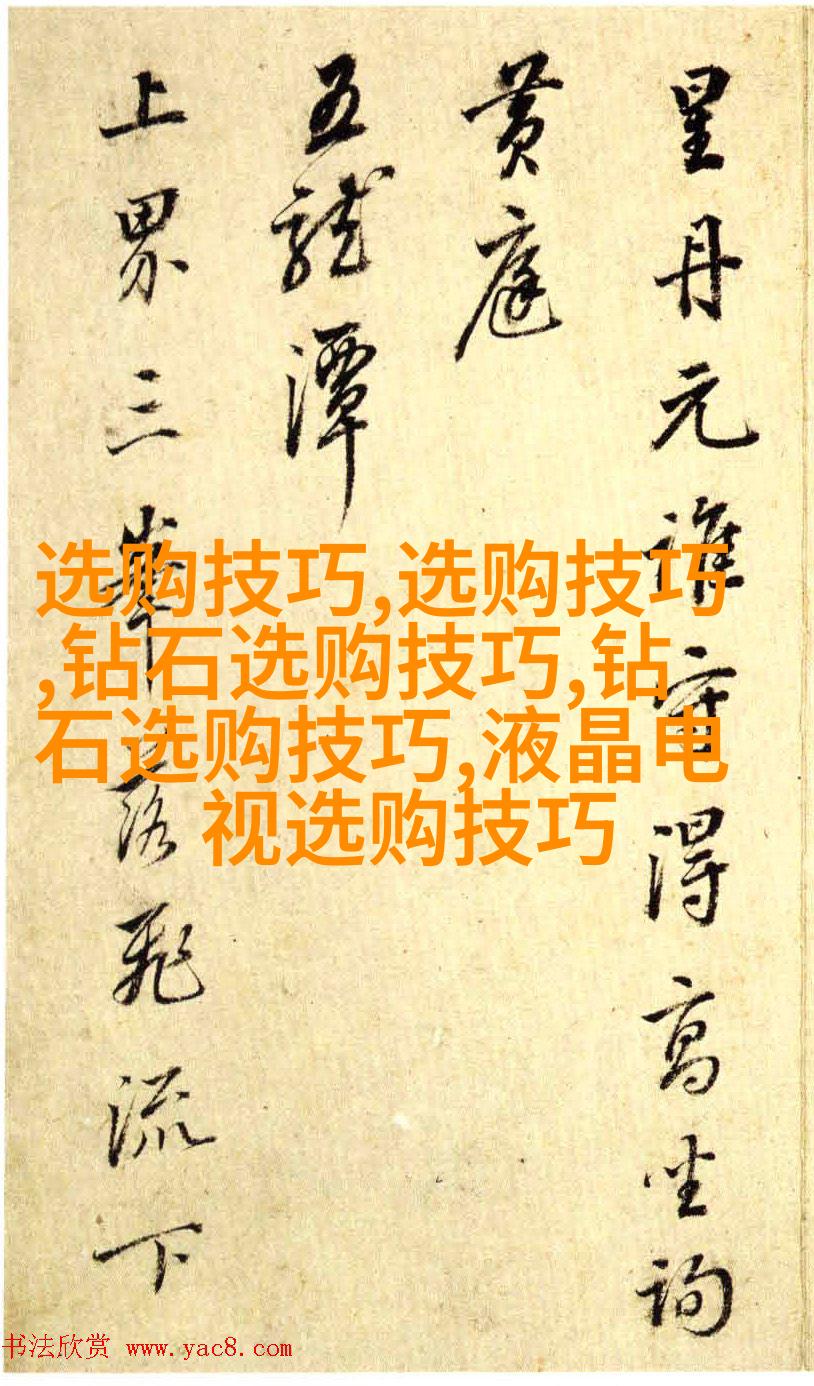 星丹元誰守得高坐詢
黄庭
五龍潭
上界三峯落飛流下
选购技巧,选购技巧
,钻石选购技巧,钻
石选购技巧,液晶电
视选购技巧
书法欣赏 www.yac8.com